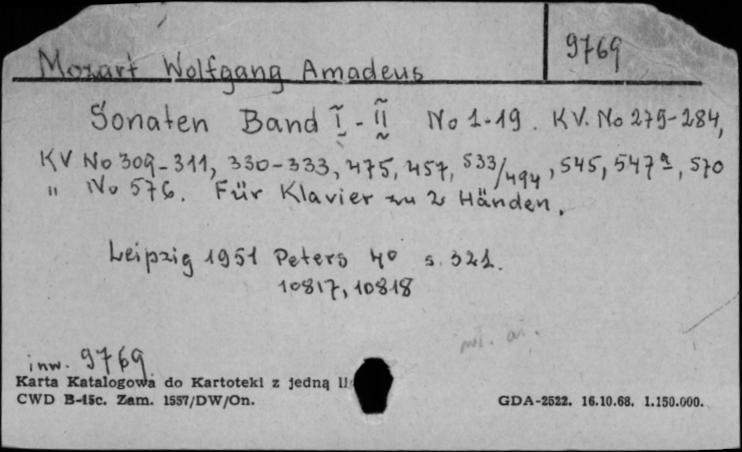 Mozart Wolfgang Amadeus 9769
Sonaten Band I - II No 1-19. KV. No 279-284,
KV No 309-311, 330-333, 475, 457, 533/494, 545, 547a, 570
" No 576. Für Klavier zu 2 Händen.
Leipzig 1951 Peters 4° s. 321.
10817, 10818
inw. 9769
Karta Katalogowa do Kartoteki z jedną
CWD B-15c. Zam. 1557/DW/On.
GDA-2522. 16.10.68. 1.150.000.